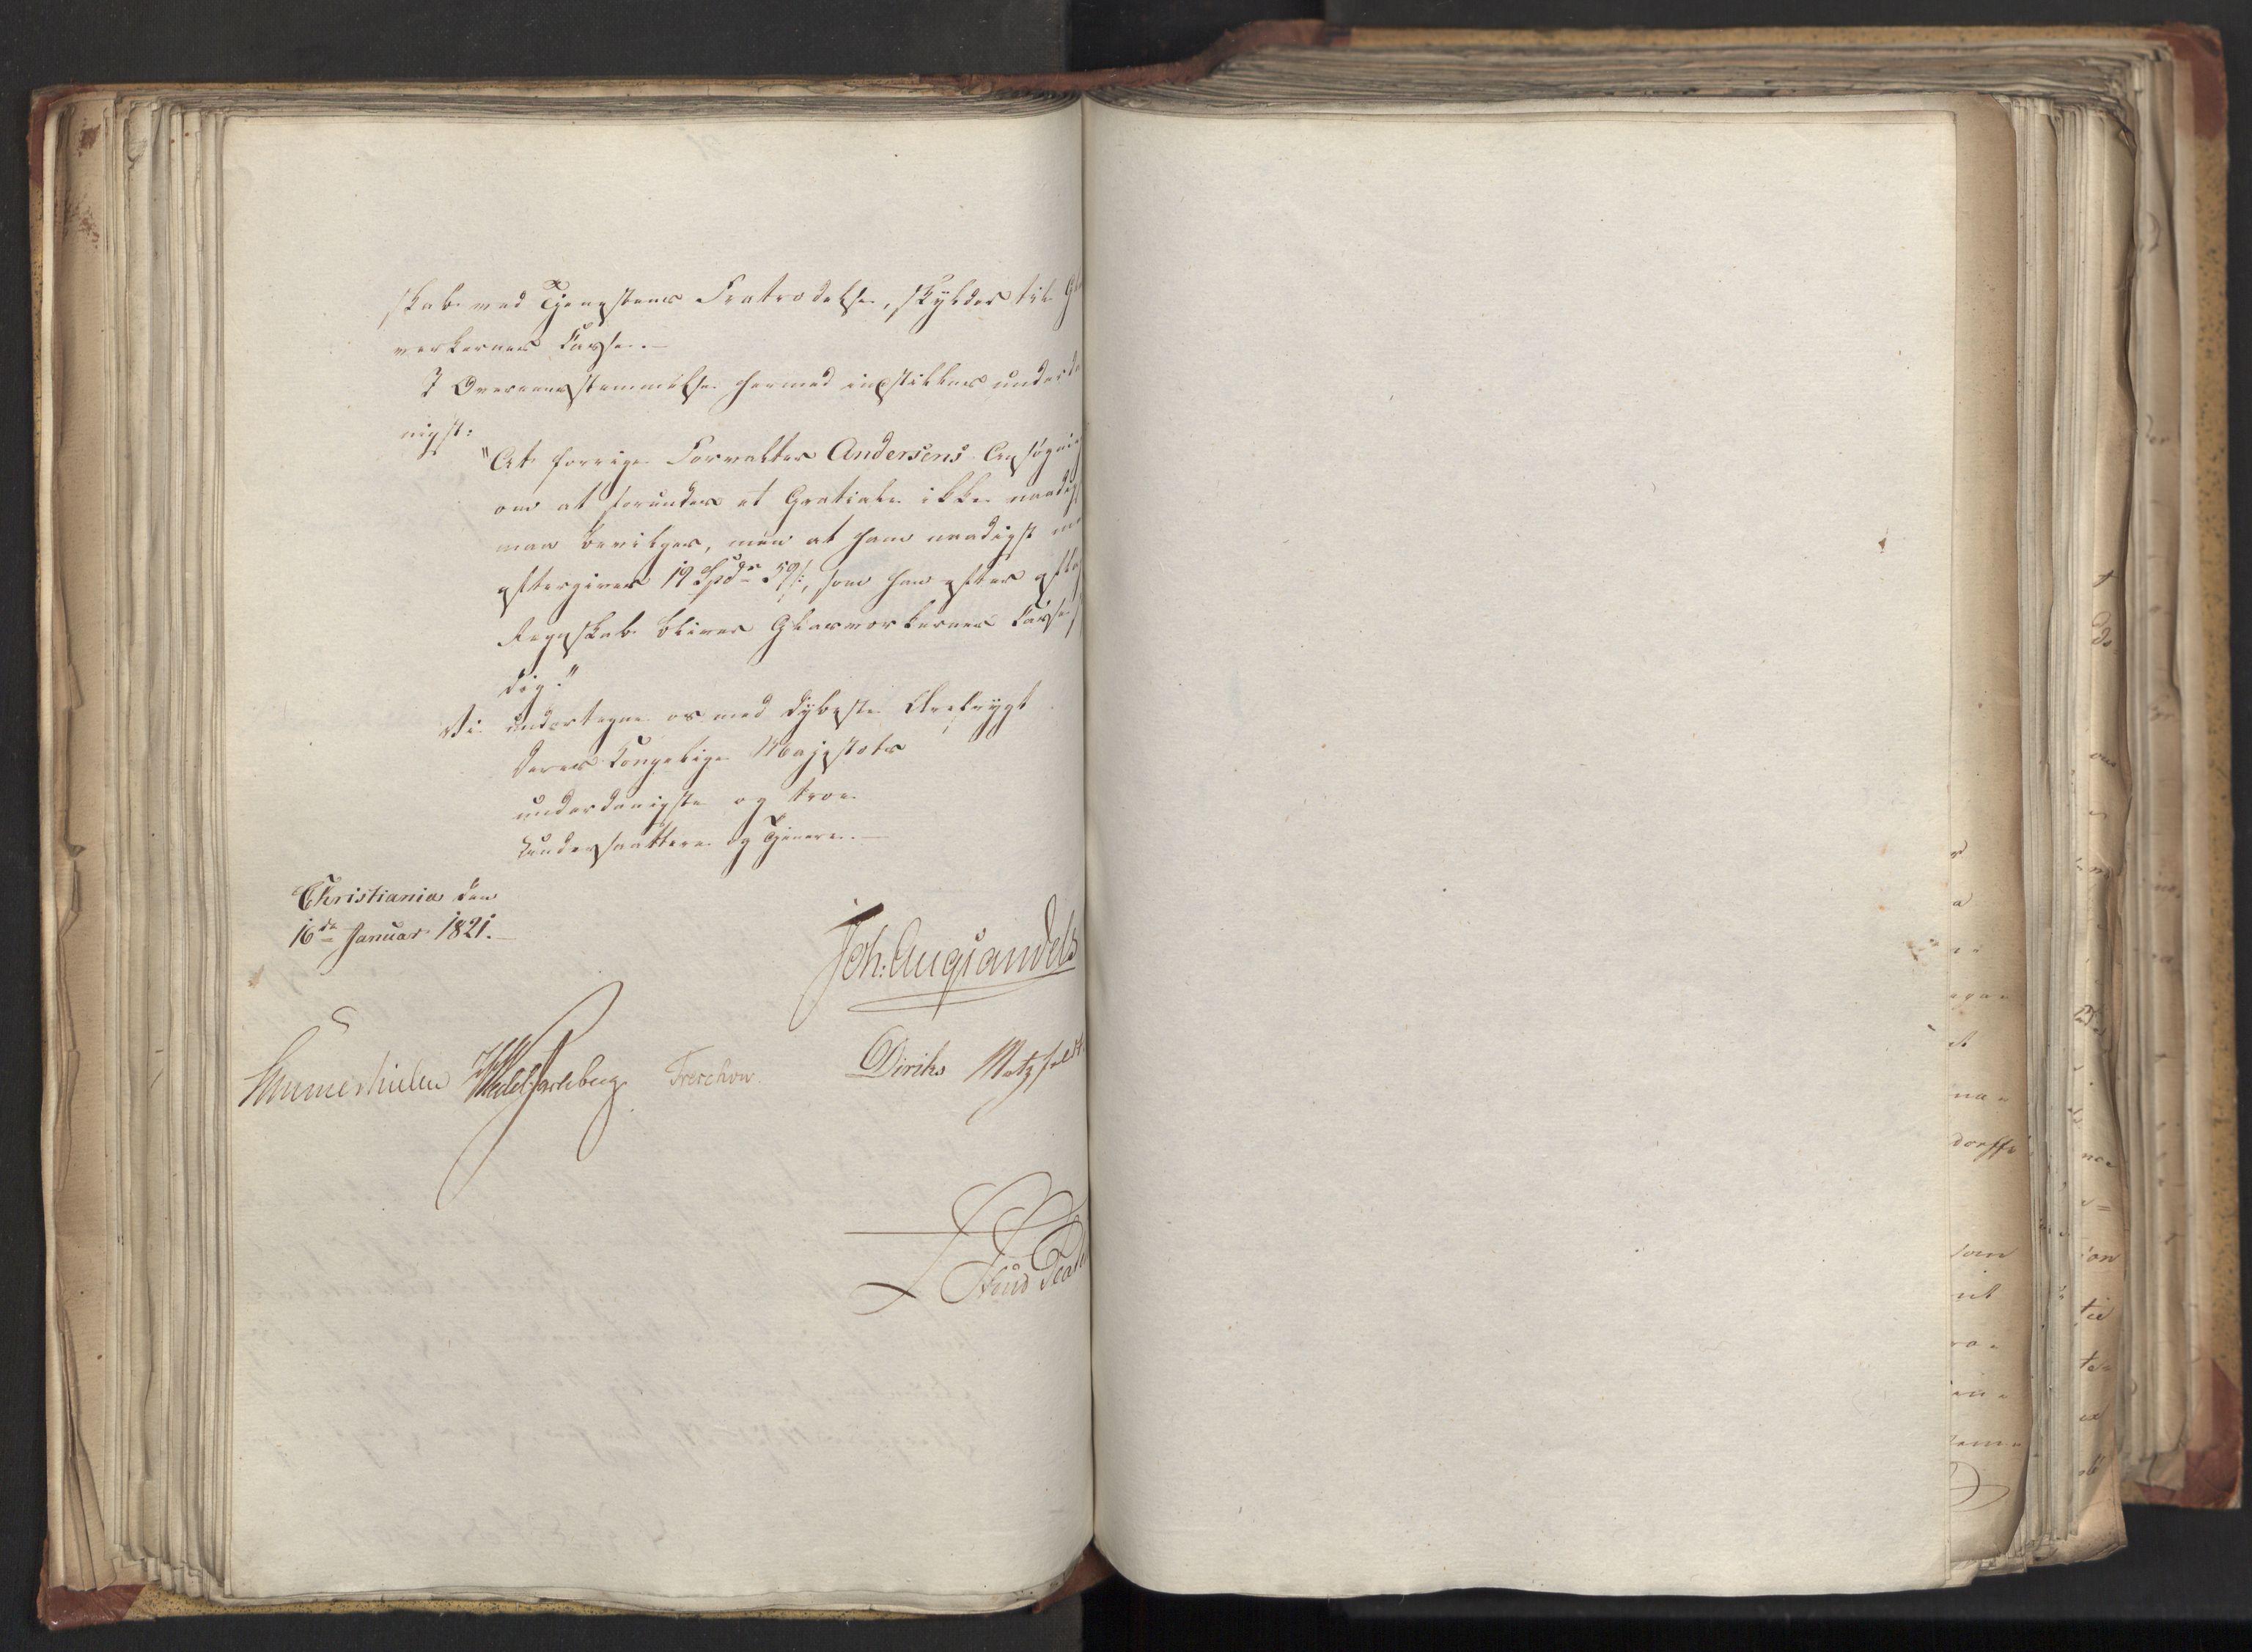 skab ved Tjenestens Fratrædelse, skylder til
verkernes Casse.—
I Overeensstemmelse hermed indstilles under
nigst:
"At forrige Forvalter Andersens Ansøgning
om at forundes et Gratiale ikke naadigst
maa bevilges, men at ham naadigst
eftergives 19 Spdr 59 s:, som han efter
Regnskab bliver Glasverkernes Casse
dig."
Vi undertegne os med dybeste Ærefrygt
Deres Kongelige Majestæts
underdanigste og troe
Undersaattere og Tjenere.—
Christiania den
16de Januar 1821.
Joh: Aug: Sandels
Sommerhielm Wedel Jarlsberg Treschow Diriks Motzfeldt